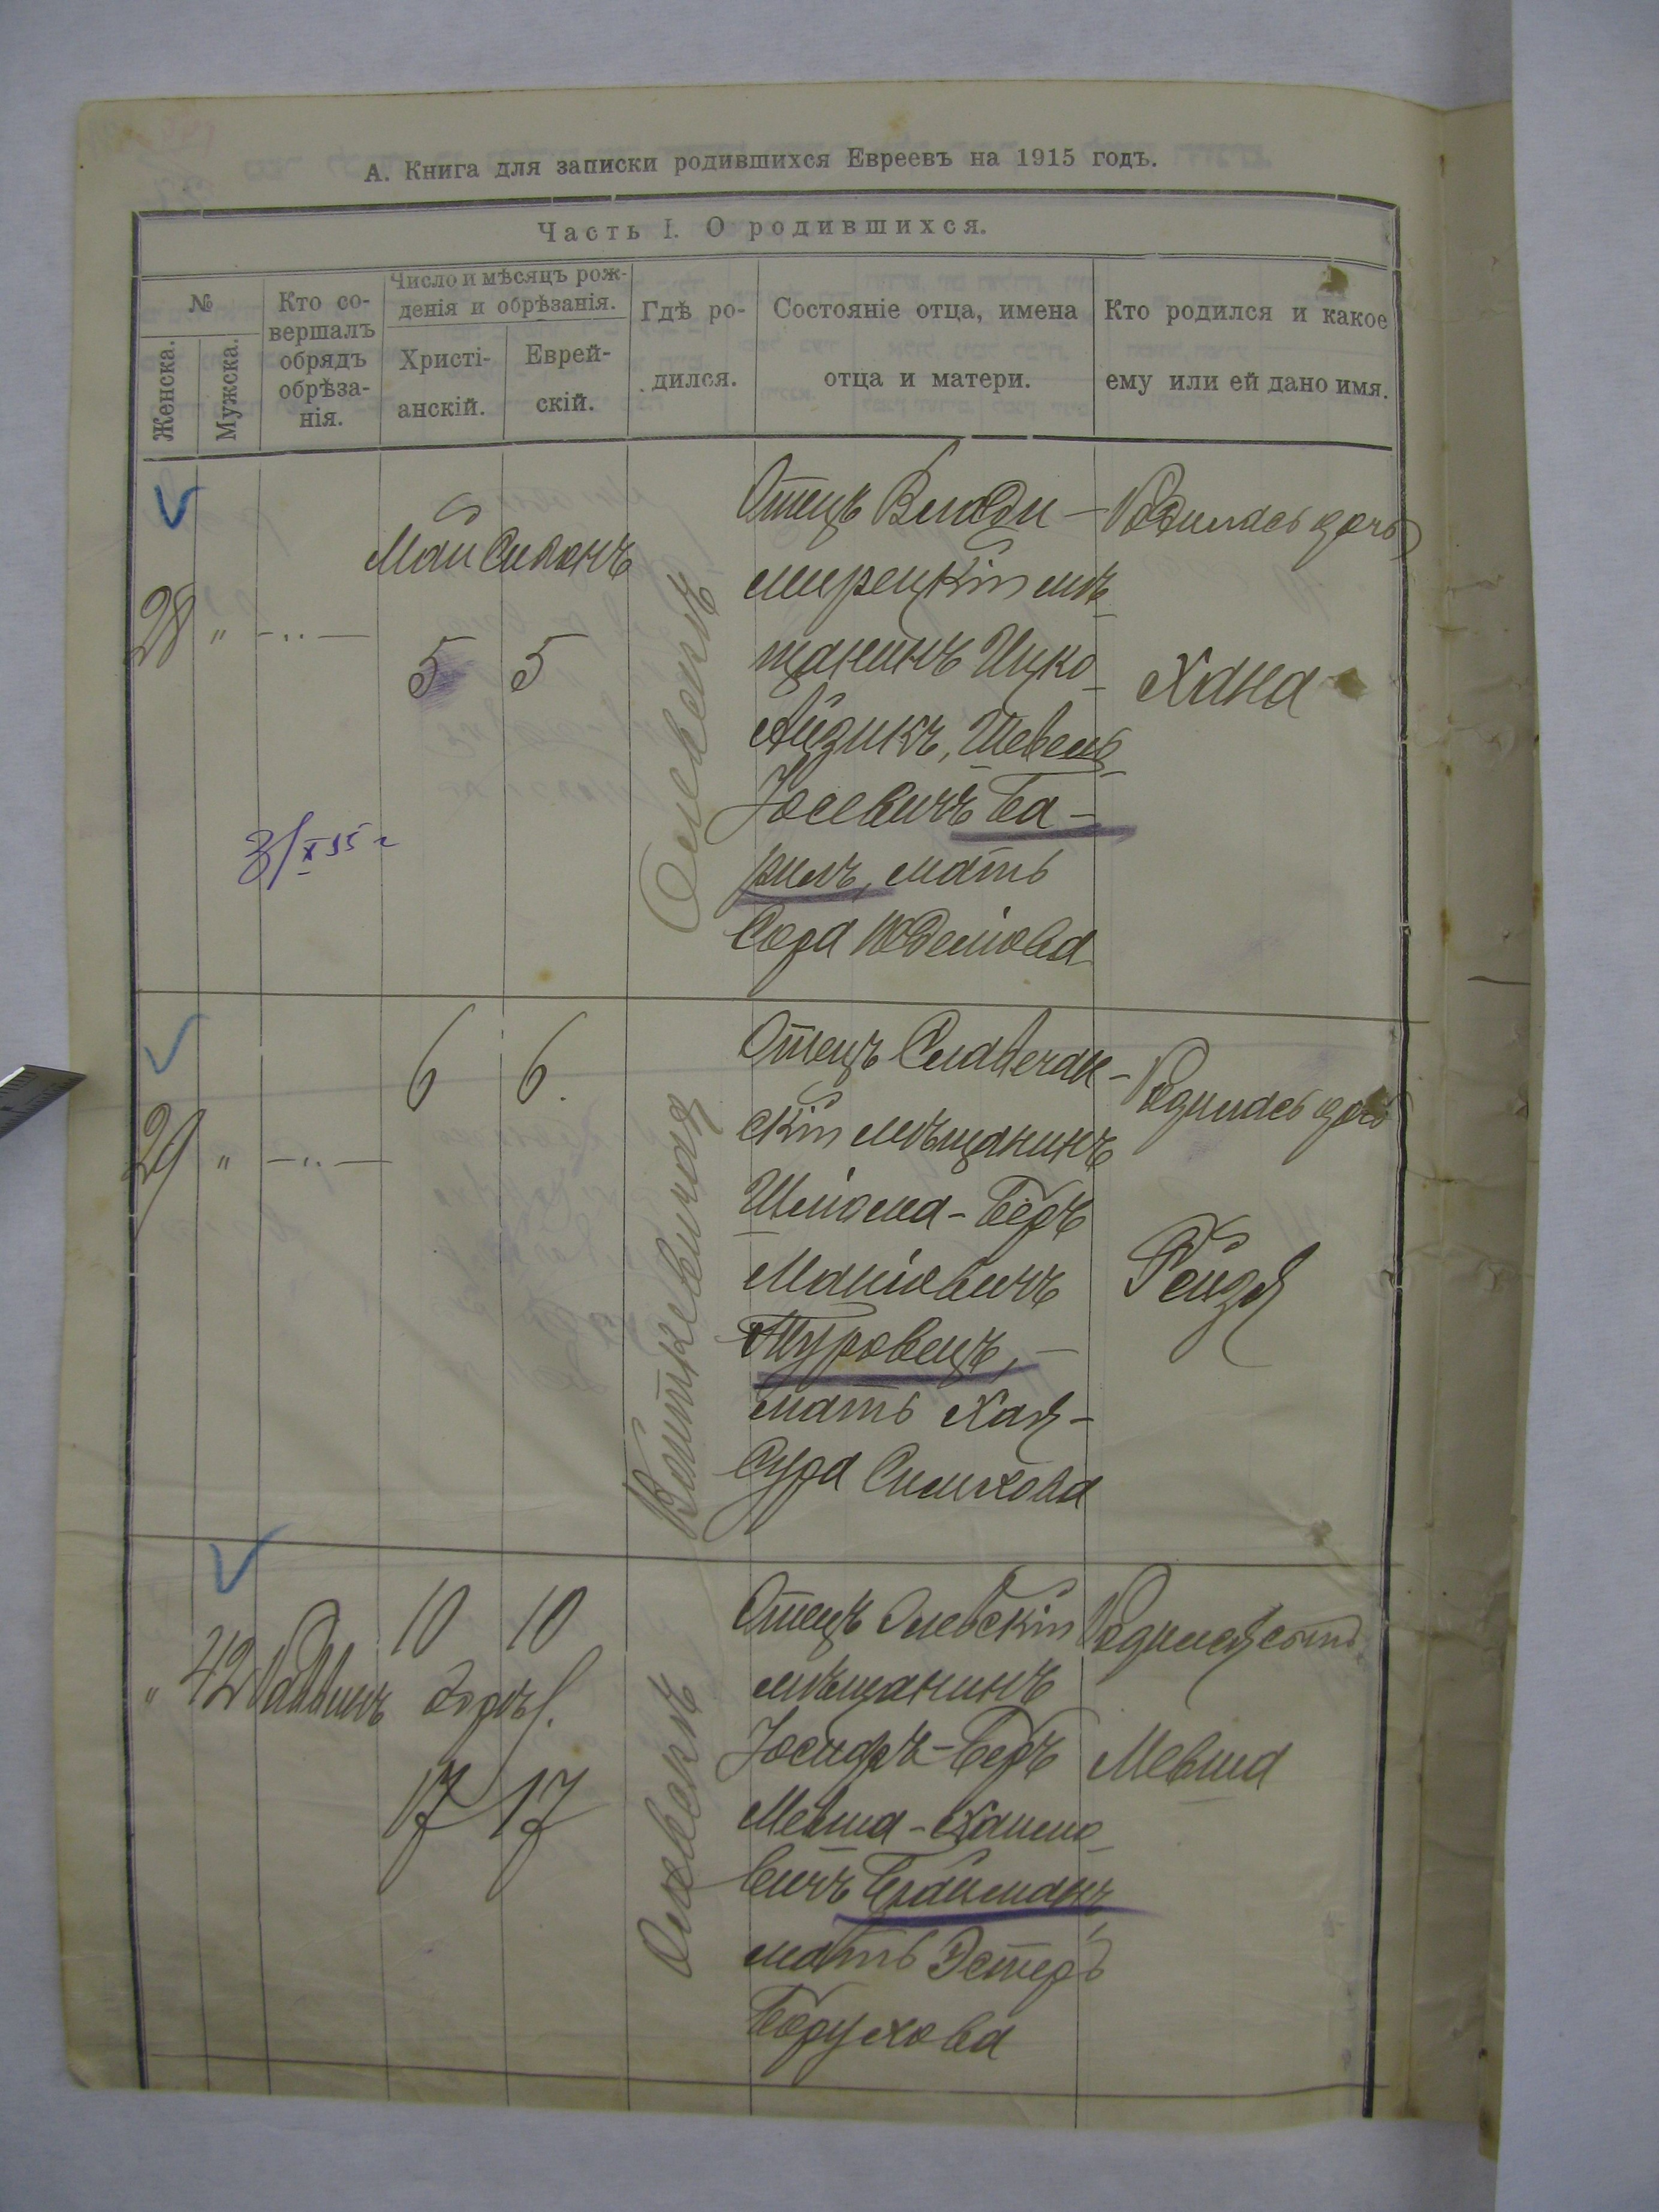 А. Книга для записки родившихся Евреевъ на 1915 годъ.
Часть I. О родившихся.
№
Женска.
Мужска.
Кто со-
вершалъ
обрядъ
обрѣза-
нія.
Число и мѣсяцъ рож-
денія и обрѣзанія.
Христі-
анскій.
Еврей-
скій.
Гдѣ ро-
дился.
Состояніе отца, имена
отца и матери.
Кто родился и какое
ему или ей дано имя.
28
"
Май Сивонъ
5 5
3/X 35 г
Олевскъ
Отецъ Влади-
мирецкій мѣ-
щанинъ Ицко-
Айзикъ, Шевель
Іосевичъ Ба-
рилъ, мать
Сора
Родилась дочь
Хана
29
"
6 6.
Отецъ Словечан-
скій мѣщанинъ
Шліома-Беръ
Туровецъ,
мать Хая-
Сура Симхова
Родилась дочь
Рейзя
"
42
Раввинъ
10 10
обрѣз.
17 17
Олевскъ
Отецъ Олевскій
мѣщанинъ
Іосифъ-Беръ
Мевша-Хаимо-
вичъ Брайманъ,
мать Эстеръ
Борухова
Родился сынъ
Мевша